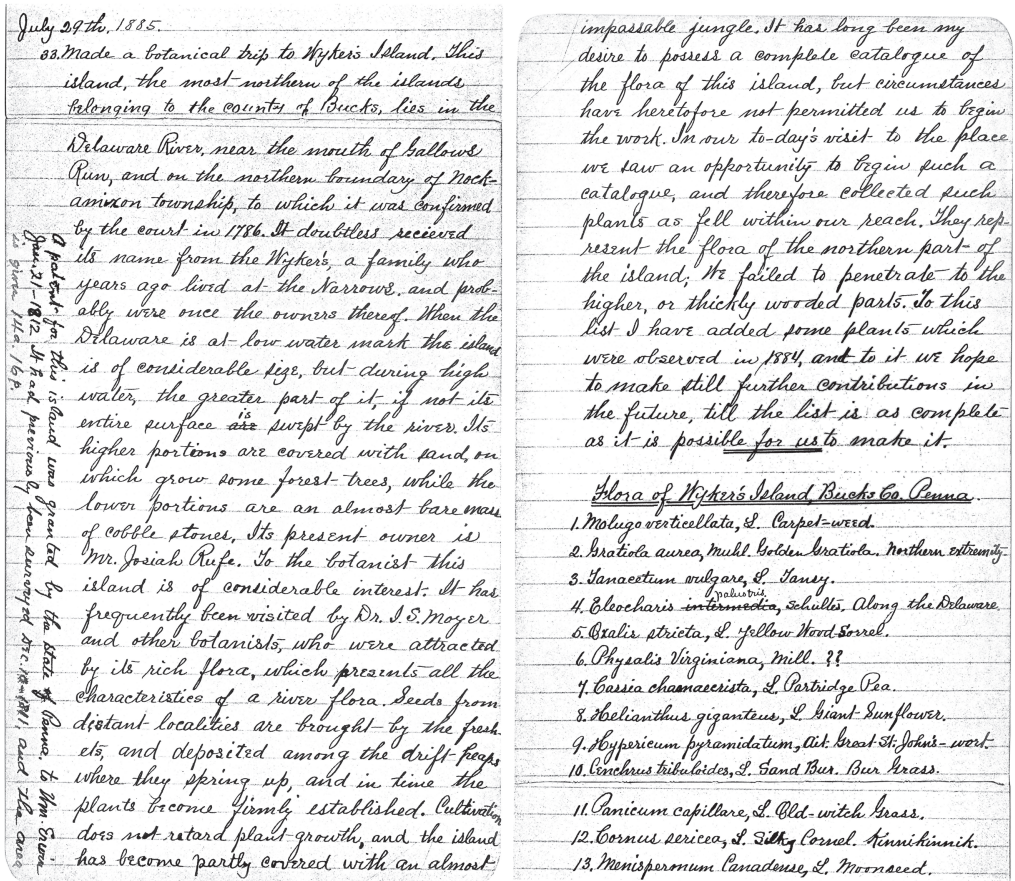 July 29th, 1885.
33. Made a botanical trip to Wyker's Island. This
island, the most northern of the islands
belonging to the county of Bucks, lies in the
Delaware River, near the mouth of Gallows
Run, and on the northern boundary of Nock-
amixon township, to which it was confirmed
by the court in 1786. It doubtless recieved
its name from the Wyker's, a family who
years ago lived at the Narrows, and prob-
ably were once the owners thereof. When the
Delaware is at low water mark the island
is of considerable size, but during high
water, the greater part of it, if not its
entire surface are is swept by the river. Its
higher portions are covered with sand, on
which grow some forest-trees, while the
lower portions are an almost bare mass
of cobble stones. Its present owner is
Mr. Josiah Rufe. To the botanist this
island is of considerable interest. It has
frequently been visited by Dr. I. S. Moyer
and other botanists, who were attracted
by its rich flora, which presents all the
characteristics of a river flora. Seeds from
distant localities are brought by the fresh-
ets, and deposited among the drift-heaps
where they spring up, and in time the
plants become firmly established. Cultivation
does not retard plant growth, and the island
has become partly covered with an almost
A patent for this island was granted by the State of Penna. to Wm. Erwin
Jan. 21-1812. It had previously been surveyed Dec. 12-1811, and the area
is given 14a. 16p.
impassable jungle. It has long been my
desire to possess a complete catalogue of
the flora of this island, but circumstances
have heretofore not permitted us to begin
the work. In our to-day's visit to the place
we saw an opportunity to begin such a
catalogue, and therefore collected such
plants as fell within our reach. They rep-
resent the flora of the northern part of
the island; We failed to penetrate to the
higher, or thickly wooded parts. To this
list I have added some plants which
were observed in 1884, and to it we hope
to make still further contributions in
the future, till the list is as complete
as it is possible for us to make it.
Flora of Wyker's Island, Bucks Co. Penna.
1. Molugo verticellata, L. Carpet-weed.
2. Gratiola aurea, Muhl. Golden Gratiola. Northern extremity
3. Tanacetum vulgare, L. Tansy.
4. Eleocharis intermedia palustris, Schultes. Along the Delaware.
5. Oxalis stricta, L. Yellow Wood-Sorrel.
6. Physalis Virginiana, Mill. ??
7. Cassia chamaecrista, L. Partridge Pea.
8. Helianthus giganteus, L. Giant Sunflower.
9. Hypericum pyramidatum, Ait. Great St. John's-wort.
10. Cenchrus tribuloides, L. Sand Bur. Bur Grass.
11. Panicum capillare, L. Old-witch Grass.
12. Cornus sericea, L. Silky Cornel. Kinnikinnik.
13. Menispermum Canadense, L. Moonseed.